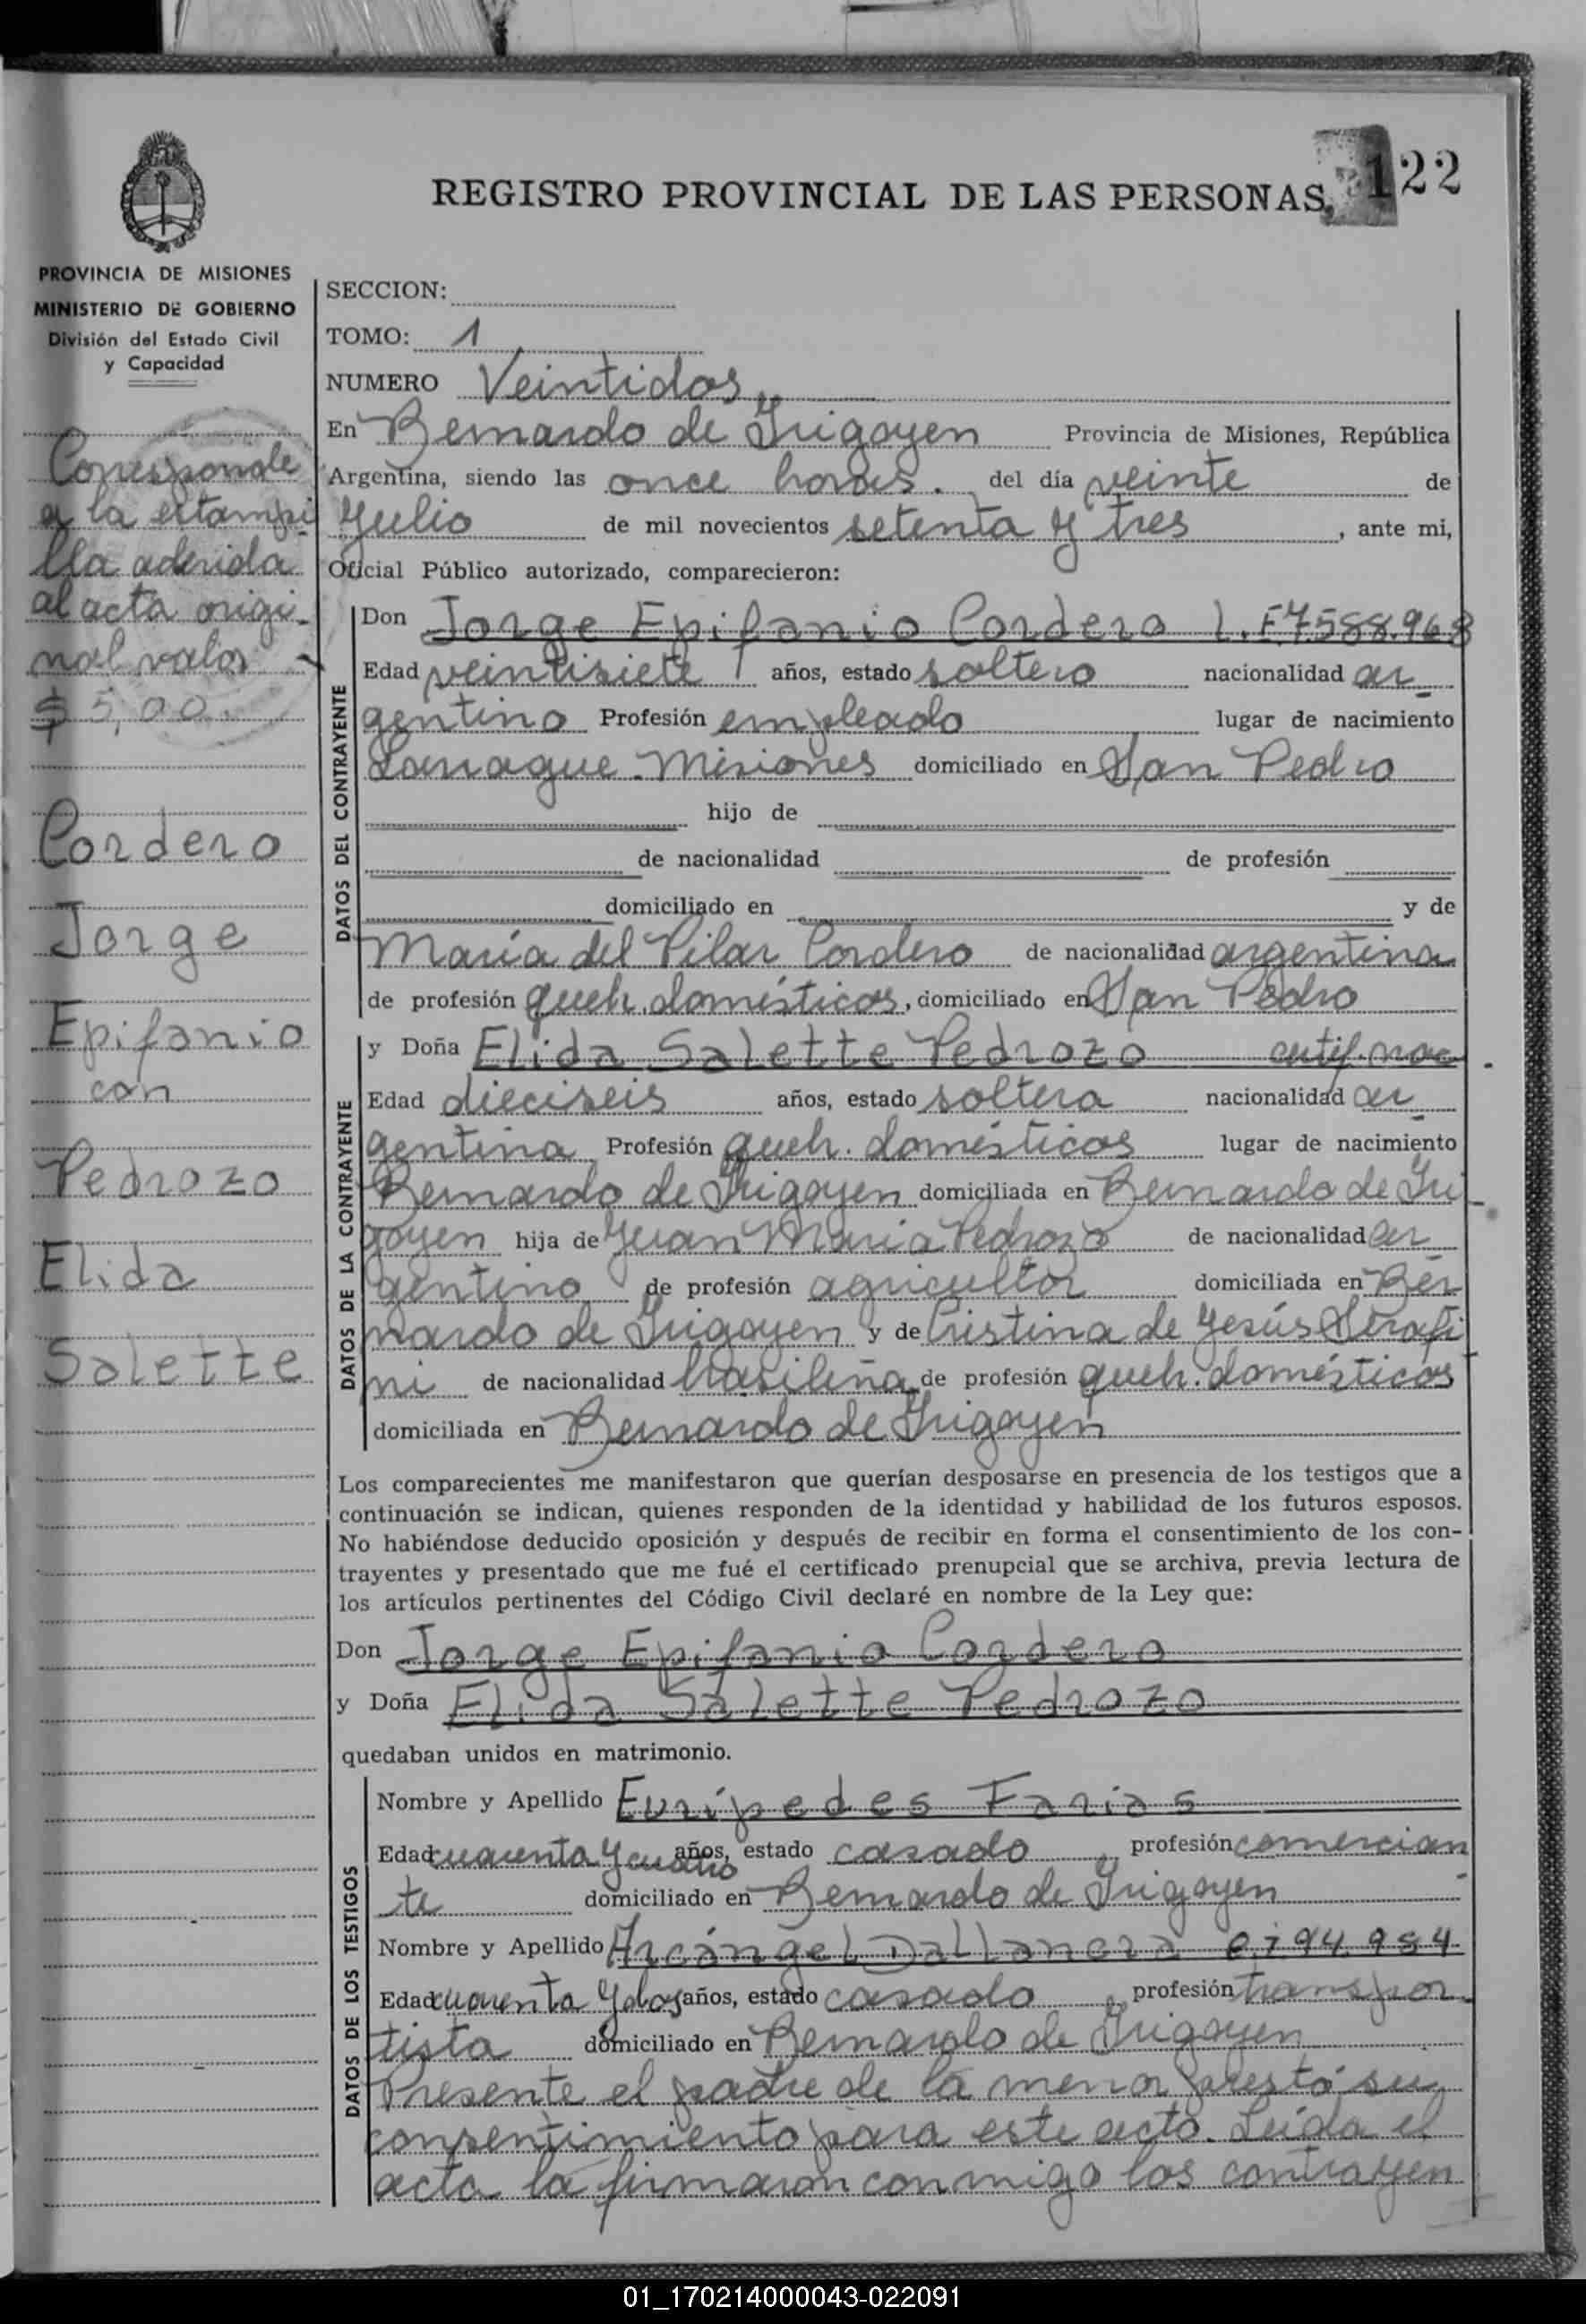 122
REGISTRO PROVINCIAL DE LAS PERSONAS
PROVINCIA DE MISIONES
MINISTERIO DE GOBIERNO
División del Estado Civil
y Capacidad
Corresponde
a la estampi
lla aderida
al acta origi-
nal valor
$ 5,00
Cordero
Jorge
Epifanio
con
Pedrozo
Elida
Salette
SECCION:
TOMO: 1
NUMERO Veintidos
En Bernardo de Irigoyen Provincia de Misiones, República
Argentina, siendo las once horas. del día veinte de
Julio de mil novecientos setenta y tres, ante mi,
Oficial Público autorizado, comparecieron:
DATOS DEL CONTRAYENTE
Don Jorge Epifanio Cordero L.E 7.588.968
Edad veintisiete años, estado soltero nacionalidad ar
gentino Profesión empleado lugar de nacimiento
Lanague. Misiones domiciliado en San Pedro
hijo de
de nacionalidad de profesión
domiciliado en y de
María del Pilar Cordero de nacionalidad argentina
de profesión queh. domésticos, domiciliado en San Pedro
DATOS DE LA CONTRAYENTE
y Doña Elida Salette Pedrozo certif. nac
Edad dieciseis años, estado soltera nacionalidad ar
gentina Profesión queh. domésticos lugar de nacimiento
Bernardo de Irigoyen domiciliada en Bernardo de Iri
goyen hija de Juan María Pedrozo de nacionalidad ar
gentino de profesión agricultor domiciliada en Ber
nardo de Irigoyen y de Cristina de Jesús Serafi
ni de nacionalidad brasileña de profesión queh. domésticos
domiciliada en Bernardo de Irigoyen
Los comparecientes me manifestaron que querían desposarse en presencia de los testigos que a
continuación se indican, quienes responden de la identidad y habilidad de los futuros esposos.
No habiéndose deducido oposición y después de recibir en forma el consentimiento de los con-
trayentes y presentado que me fué el certificado prenupcial que se archiva, previa lectura de
los artículos pertinentes del Código Civil declaré en nombre de la Ley que:
Don Jorge Epifanio Cordero
y Doña Elida Salette Pedrozo
quedaban unidos en matrimonio.
DATOS DE LOS TESTIGOS
Nombre y Apellido Eurípedes Farias
Edad cuarenta y cuatro años, estado casado, profesión comercian
te domiciliado en Bernardo de Irigoyen
Nombre y Apellido Arcángel Dallanora
Edad cuarenta y dos años, estado casado, profesión transpor
tista domiciliado en Bernardo de Irigoyen
Presente el padre de la menor prestó su
consentimiento para este acto. Leida el
acta la firmaron conmigo los contrayen
01_170214000043-022091